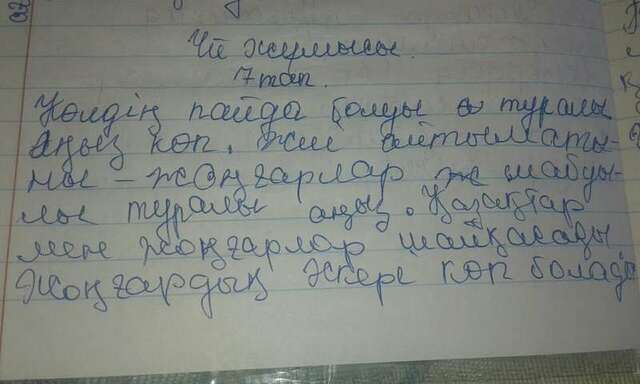 Үй жумысы.
7 тап.
Көлдің пайда болуы туралы
аңыз көп. Жиі айтылматы-
ны – жоңғарлар шабуы-
лы туралы аңыз. Қазақтар
мен жоңғарлар шайқасады
Жоңғардың әскері көп болады